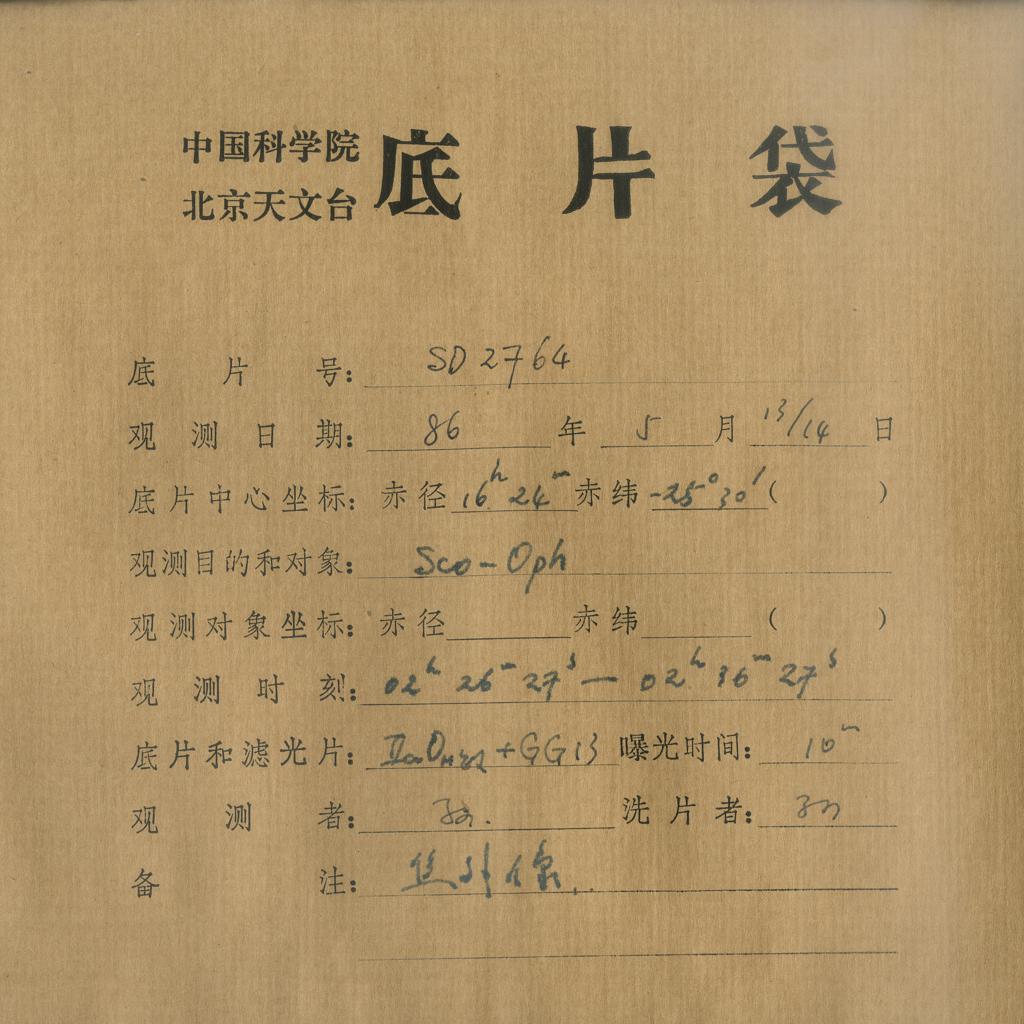 中国科学院
北京天文台
底片袋
底片号: SD 2764
观测日期: 86 年 5 月 13/14 日
底片中心坐标: 赤径 16h 24m 赤纬 -25°30′ ( )
观测目的和对象: Sco-Oph
观测对象坐标: 赤径 赤纬 ( )
观测时刻: 02h 26m 27s — 02h 36m 27s
底片和滤光片: IIaO +GG13 曝光时间: 10m
观测者: 洗片者:
备注: 焦外像